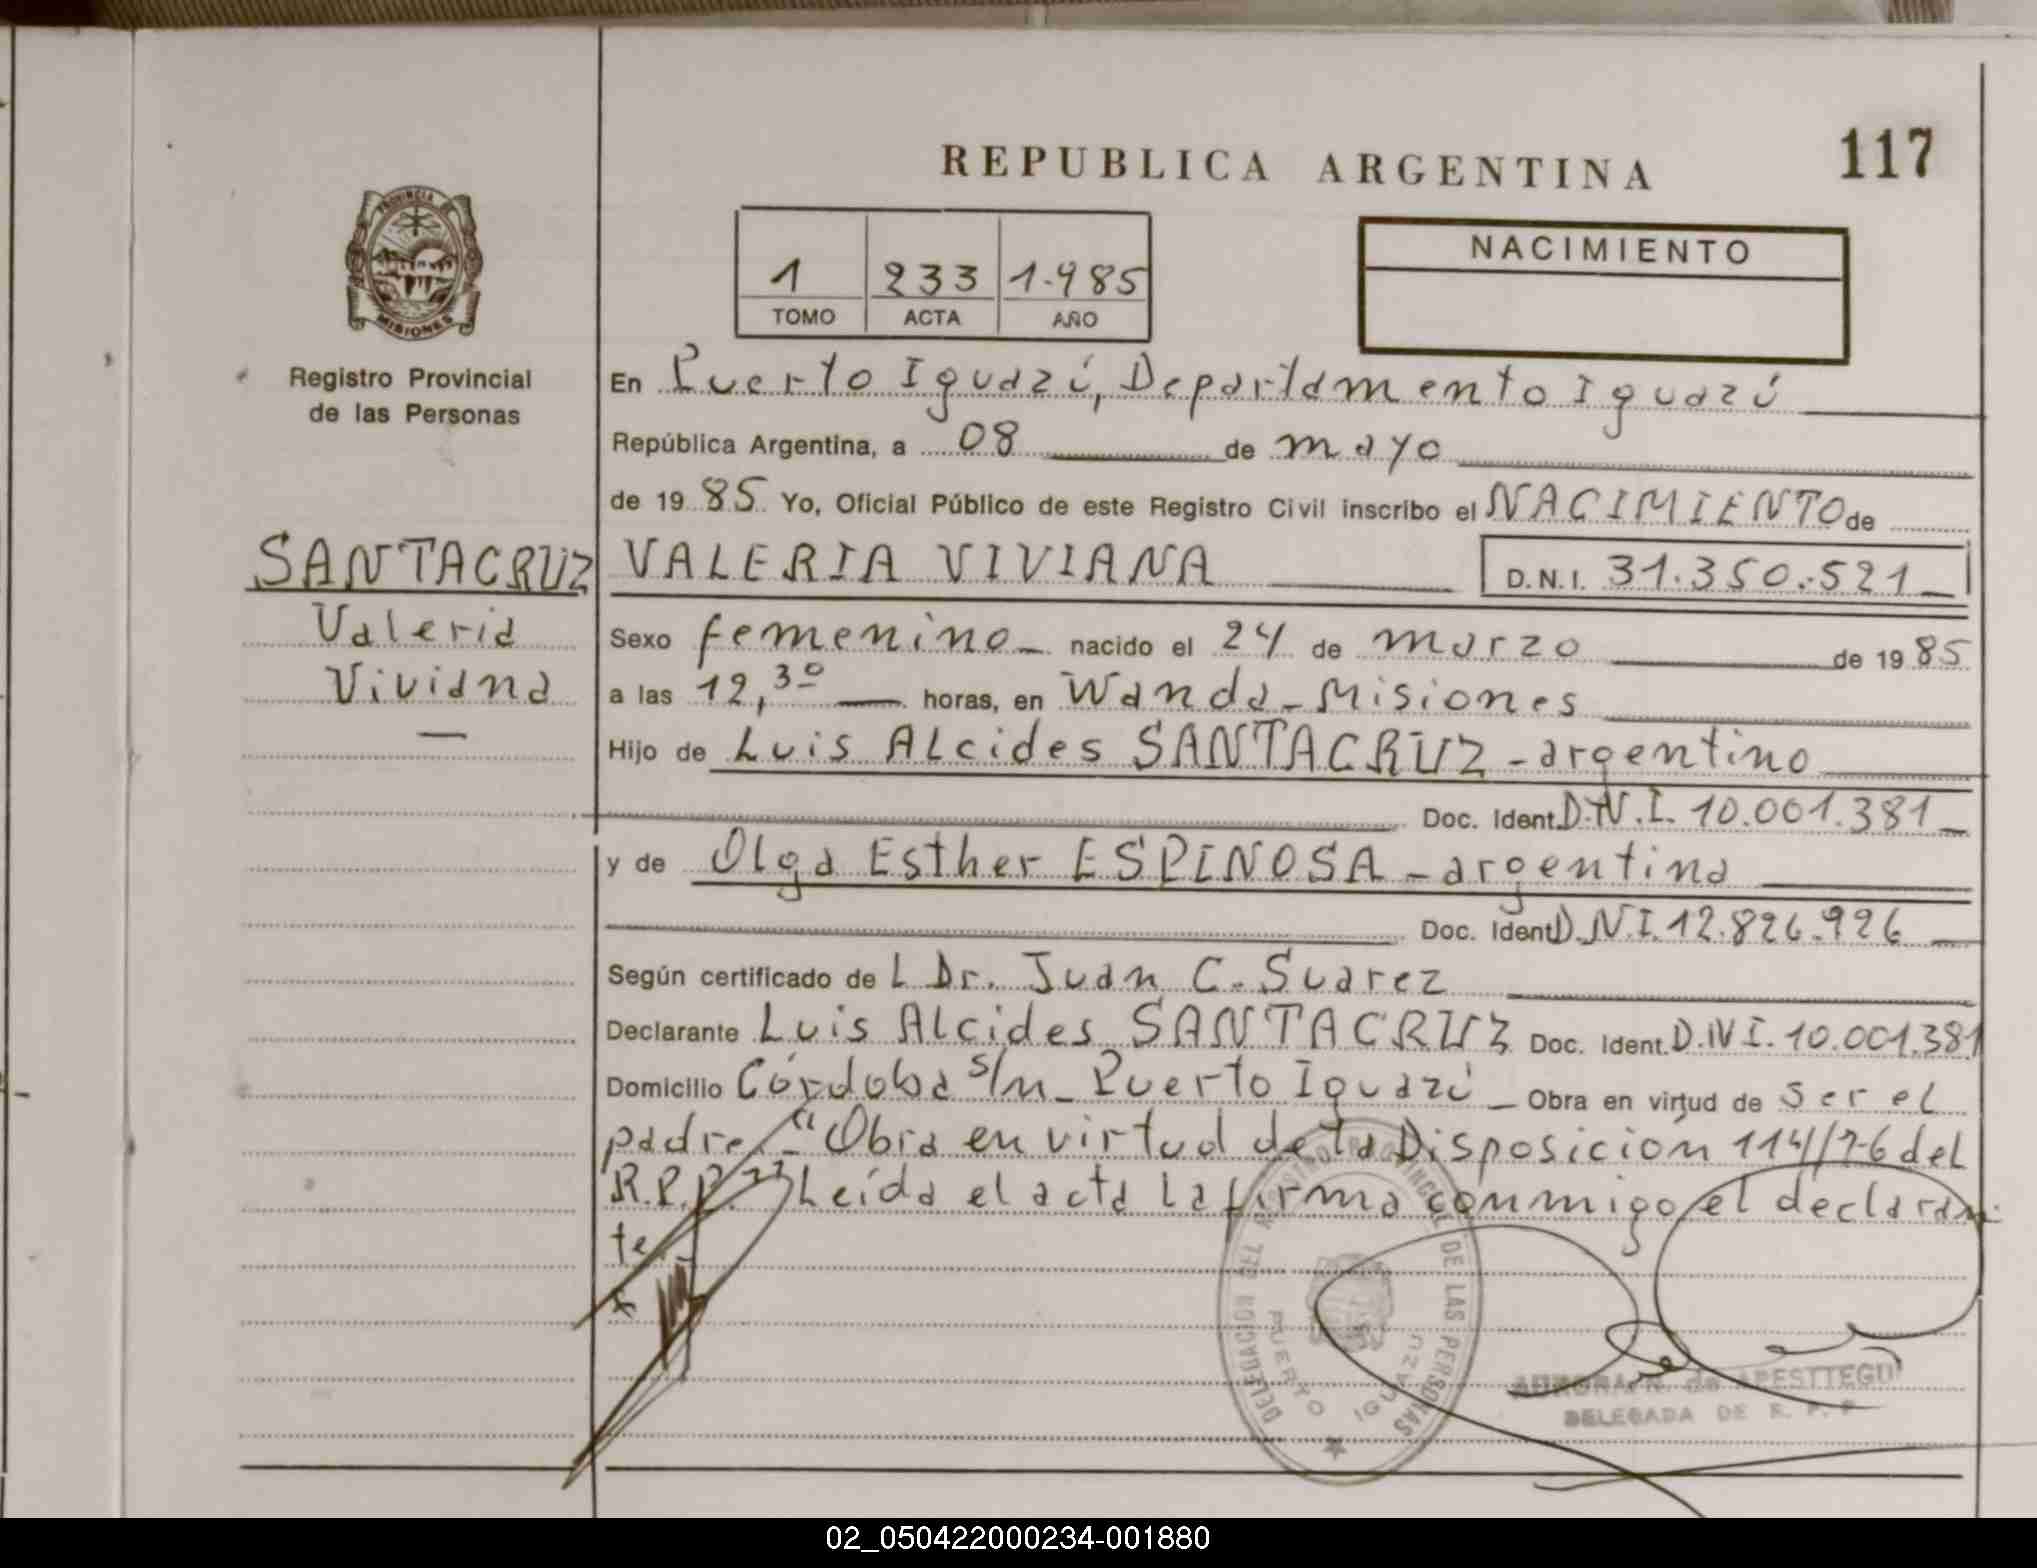 REPUBLICA ARGENTINA
117
PROVINCIA DE
MISIONES
Registro Provincial
de las Personas
1 233 1.985
TOMO ACTA AÑO
NACIMIENTO
SANTACRUZ
Valeria
Viviana
En Puerto Iguazú, Departamento Iguazú
República Argentina, a 08 de mayo
de 19 85 Yo, Oficial Público de este Registro Civil inscribo el NACIMIENTO de
VALERIA VIVIANA D.N.I. 31.350.521
Sexo femenino nacido el 24 de marzo de 19 85
a las 12,30 horas, en Wanda - Misiones
Hijo de Luis Alcides SANTACRUZ - argentino
Doc. Ident. D.N.I. 10.001.381
y de Olga Esther ESPINOSA - argentina
Doc. Ident. D.N.I. 12.826.926
Según certificado de L Dr. Juan C. Suarez
Declarante Luis Alcides SANTACRUZ Doc. Ident. D.N.I. 10.001.381
Domicilio Córdoba s/n - Puerto Iguazú - Obra en virtud de ser el
padre.- "Obra en virtud de la Disposición 114/76 del
R.P.P." Leída el acta la firma conmigo el declaran
te.-
DELEGACION DEL REGISTRO PROVINCIAL DE LAS PERSONAS
PUERTO IGUAZU
de APESTTEGUI
DELEGADA DE R. P. P.
02_050422000234-001880